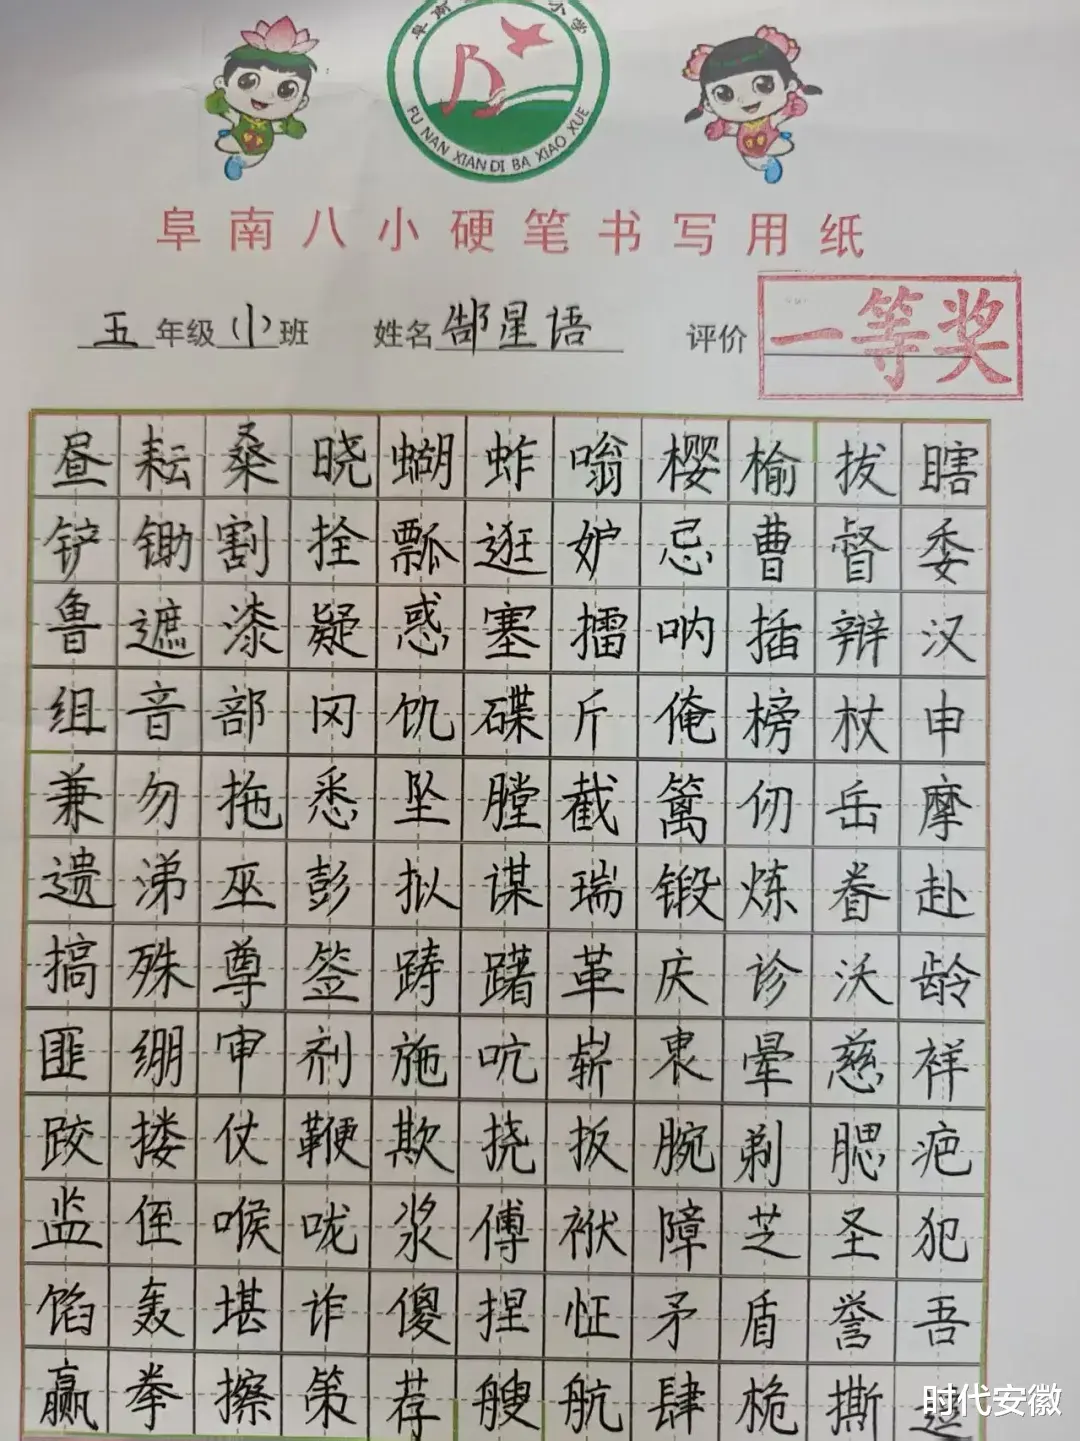 阜南 小学
FU NAN XIAN DI BA XIAO XUE
阜南八小硬笔书写用纸
五年级(1)班 姓名郜星语 评价 一等奖
昼耘桑晓蝴蚱嗡樱榆拔瞎
铲锄割拴瓢逛妒忌曹督委
鲁遮漆疑惑塞擂呐插辩汉
组音部冈饥碟斤俺榜杖申
兼勿拖悉坠膛截篱仞岳摩
遗涕巫彭拟谋瑞锻炼眷赴
搞殊尊签踌躇革庆诊沃龄
匪绷审剂施吭崭衷晕慈祥
跤搂仗鞭欺挠扳腕剃腮疤
监侄喉咙浆傅袱障芝圣犯
馅轰堪诈傻捏怔矛盾誉吾
赢拳擦第荐艘航肆桅撕
时代安徽